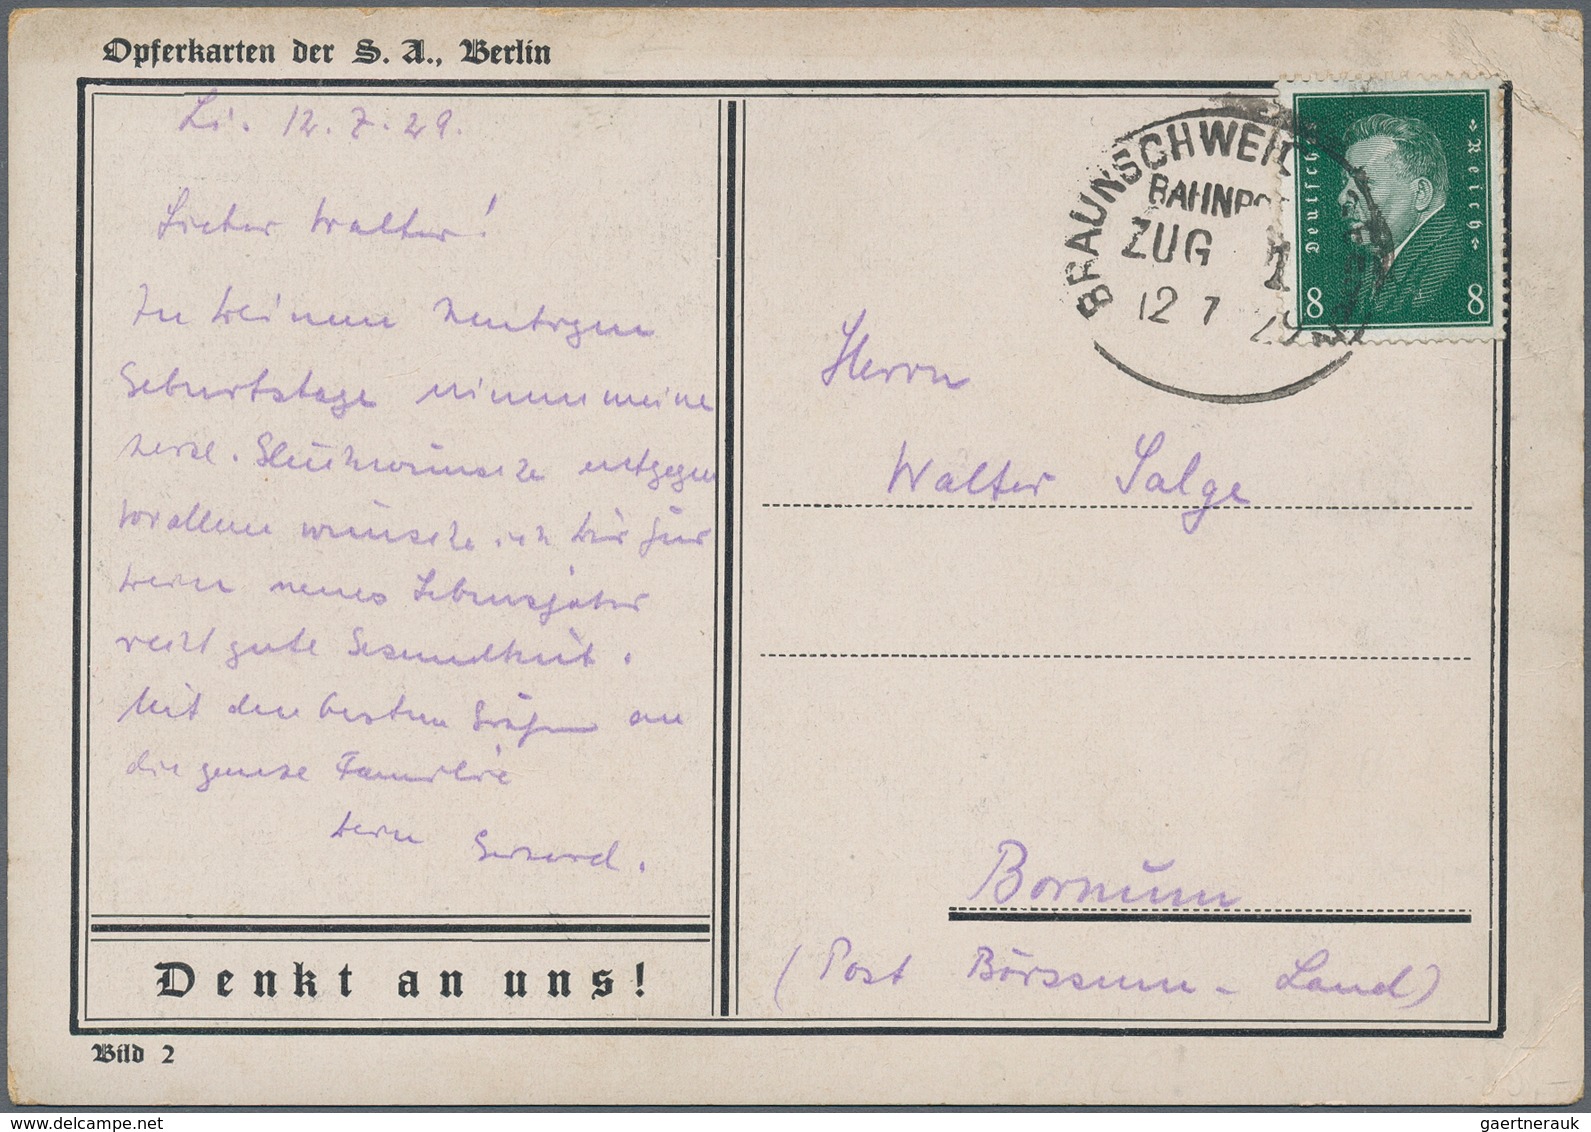 Opferkarten der S. A., Berlin
Li. 12.7.29.
Lieber Walter!
Zu Deinem heutigen
Geburtstage nimm meine
herzl. Glückwünsche entgegen
vor allem wünsche ich Dir für
Dein neues Lebensjahr
recht gute Gesundheit.
Mit den besten Grüßen an
die ganze Familie
Dein Gerhard.
Denkt an uns!
Bild 2
BRAUNSCHWEI
BAHNPO
ZUG
12 7 29
Deutsches Reich
8 8
Herrn
Walter Salge
Bornum
(Post Börssum - Land)
gaertnerauk